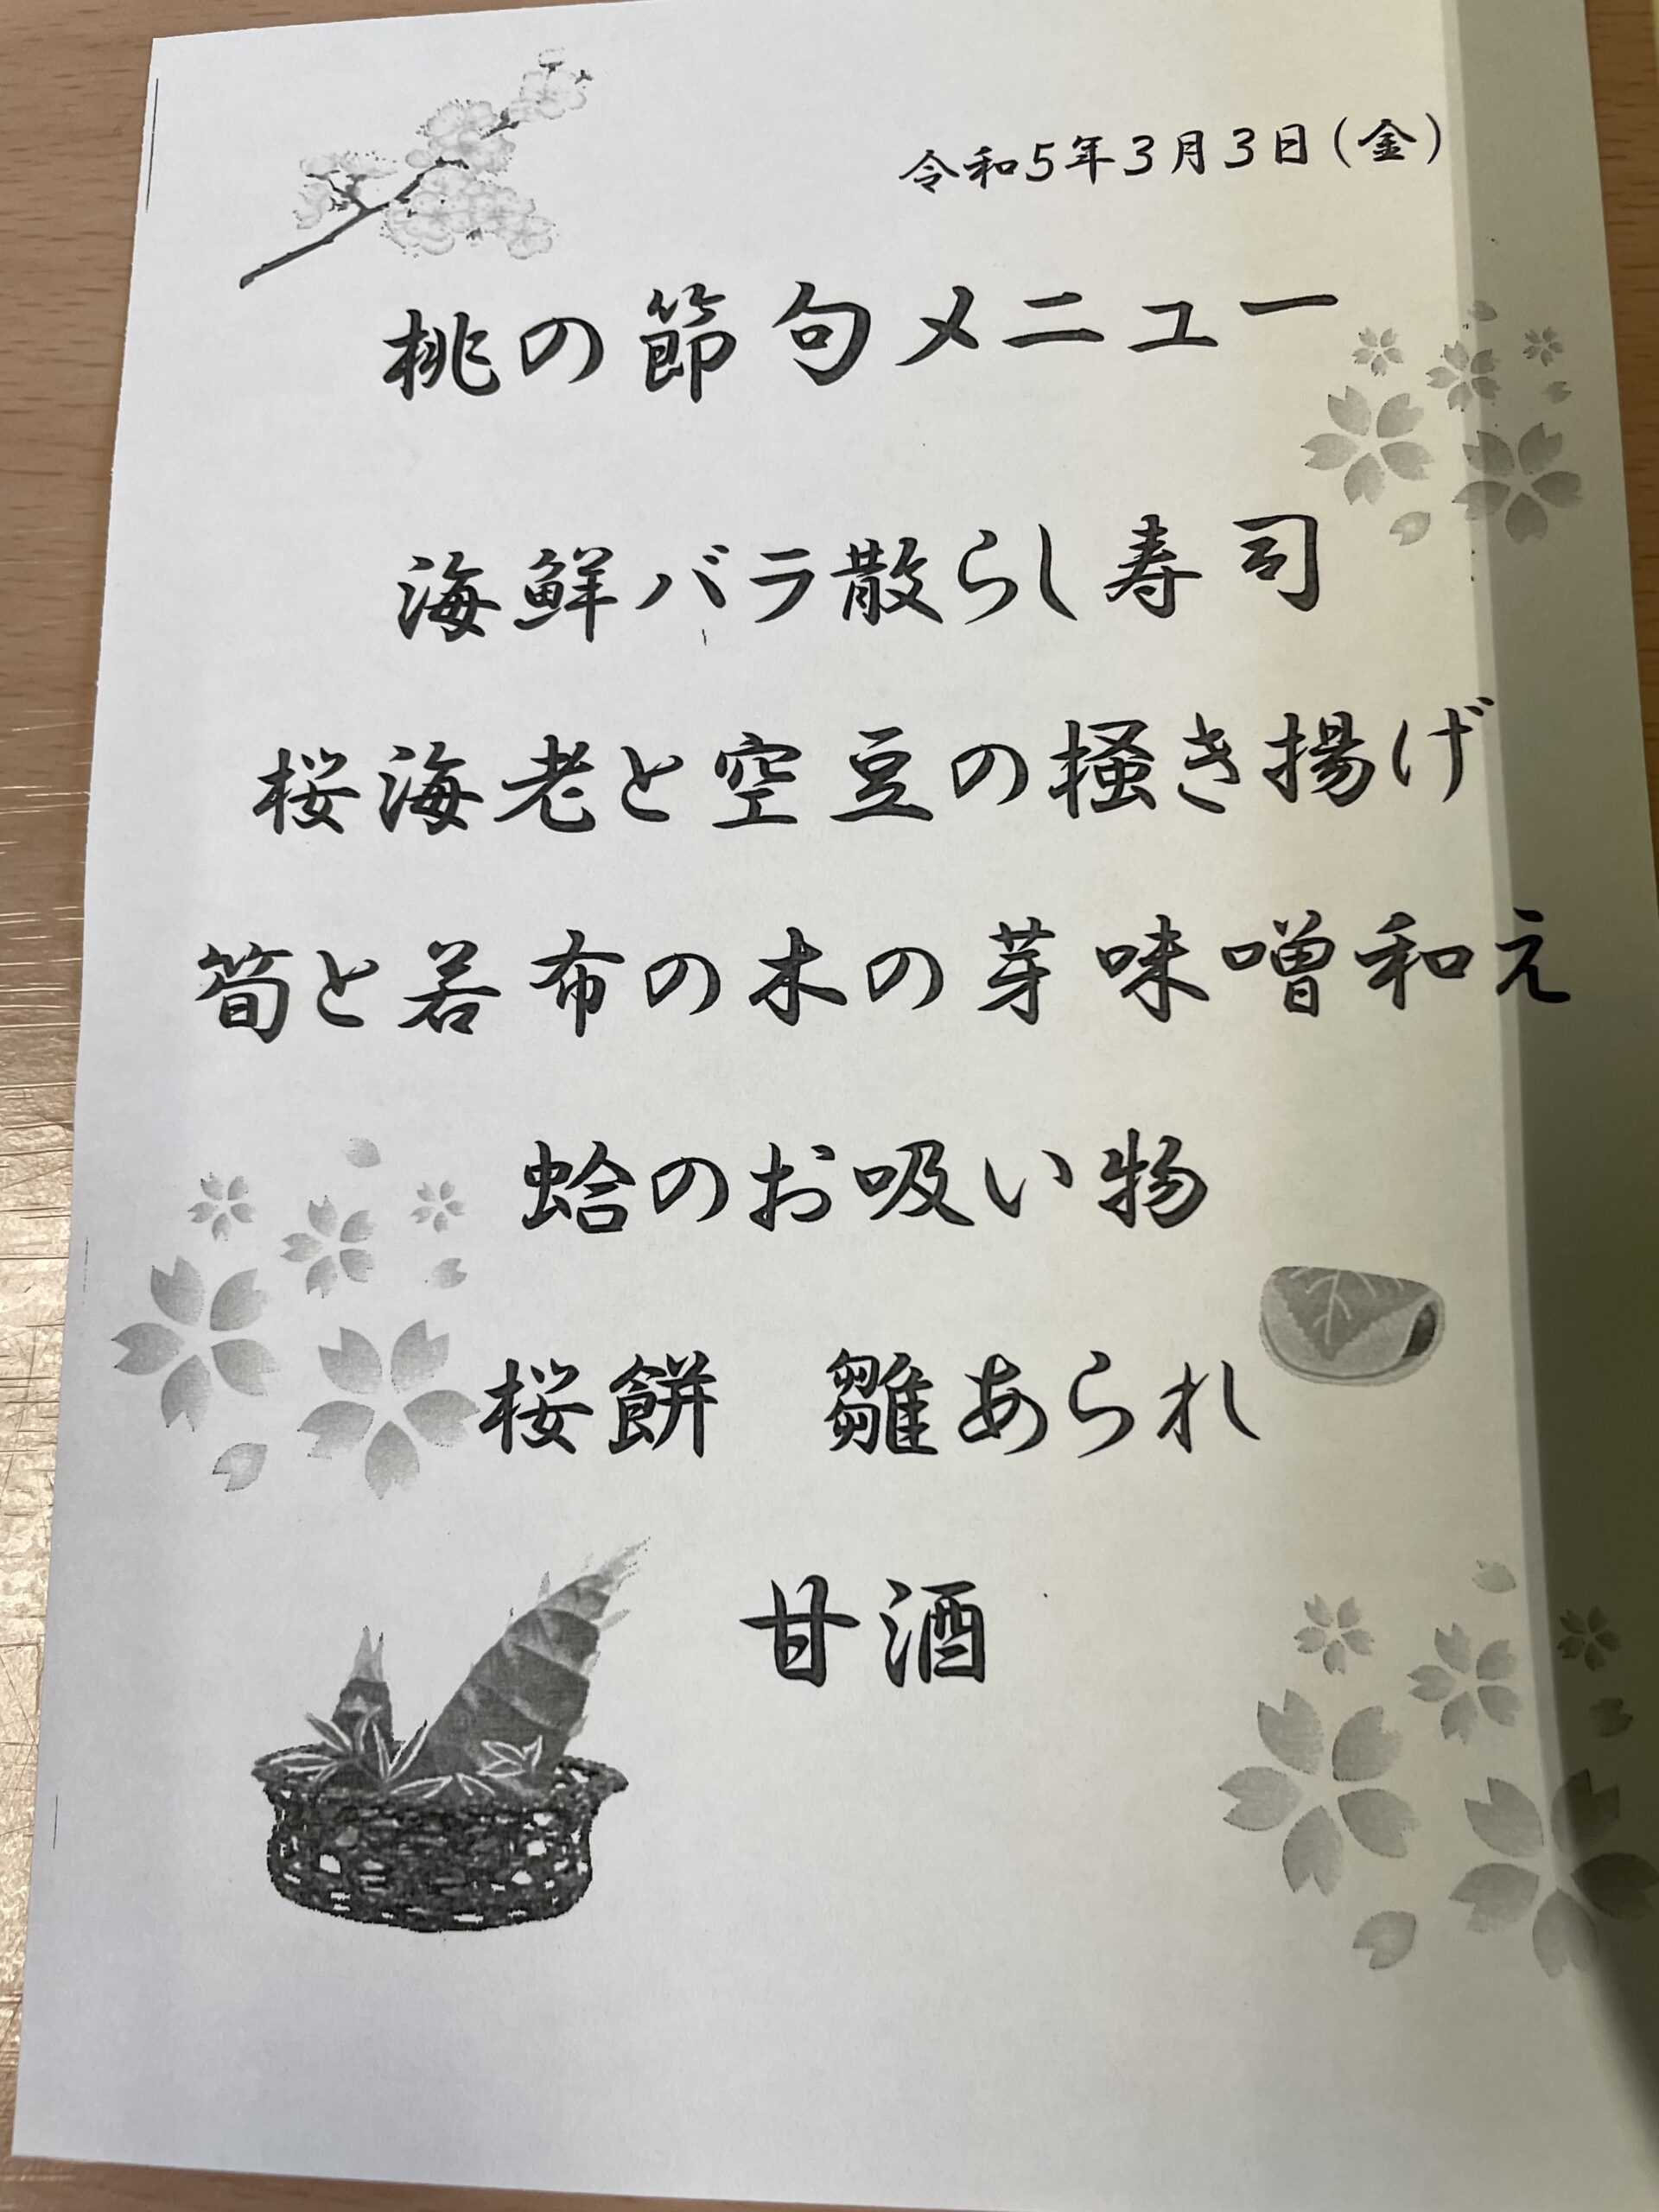 令和5年3月3日（金）
桃の節句メニュー
海鮮バラ散らし寿司
桜海老と空豆の掻き揚げ
筍と若布の木の芽味噌和え
蛤のお吸い物
桜餅　雛あられ
甘酒